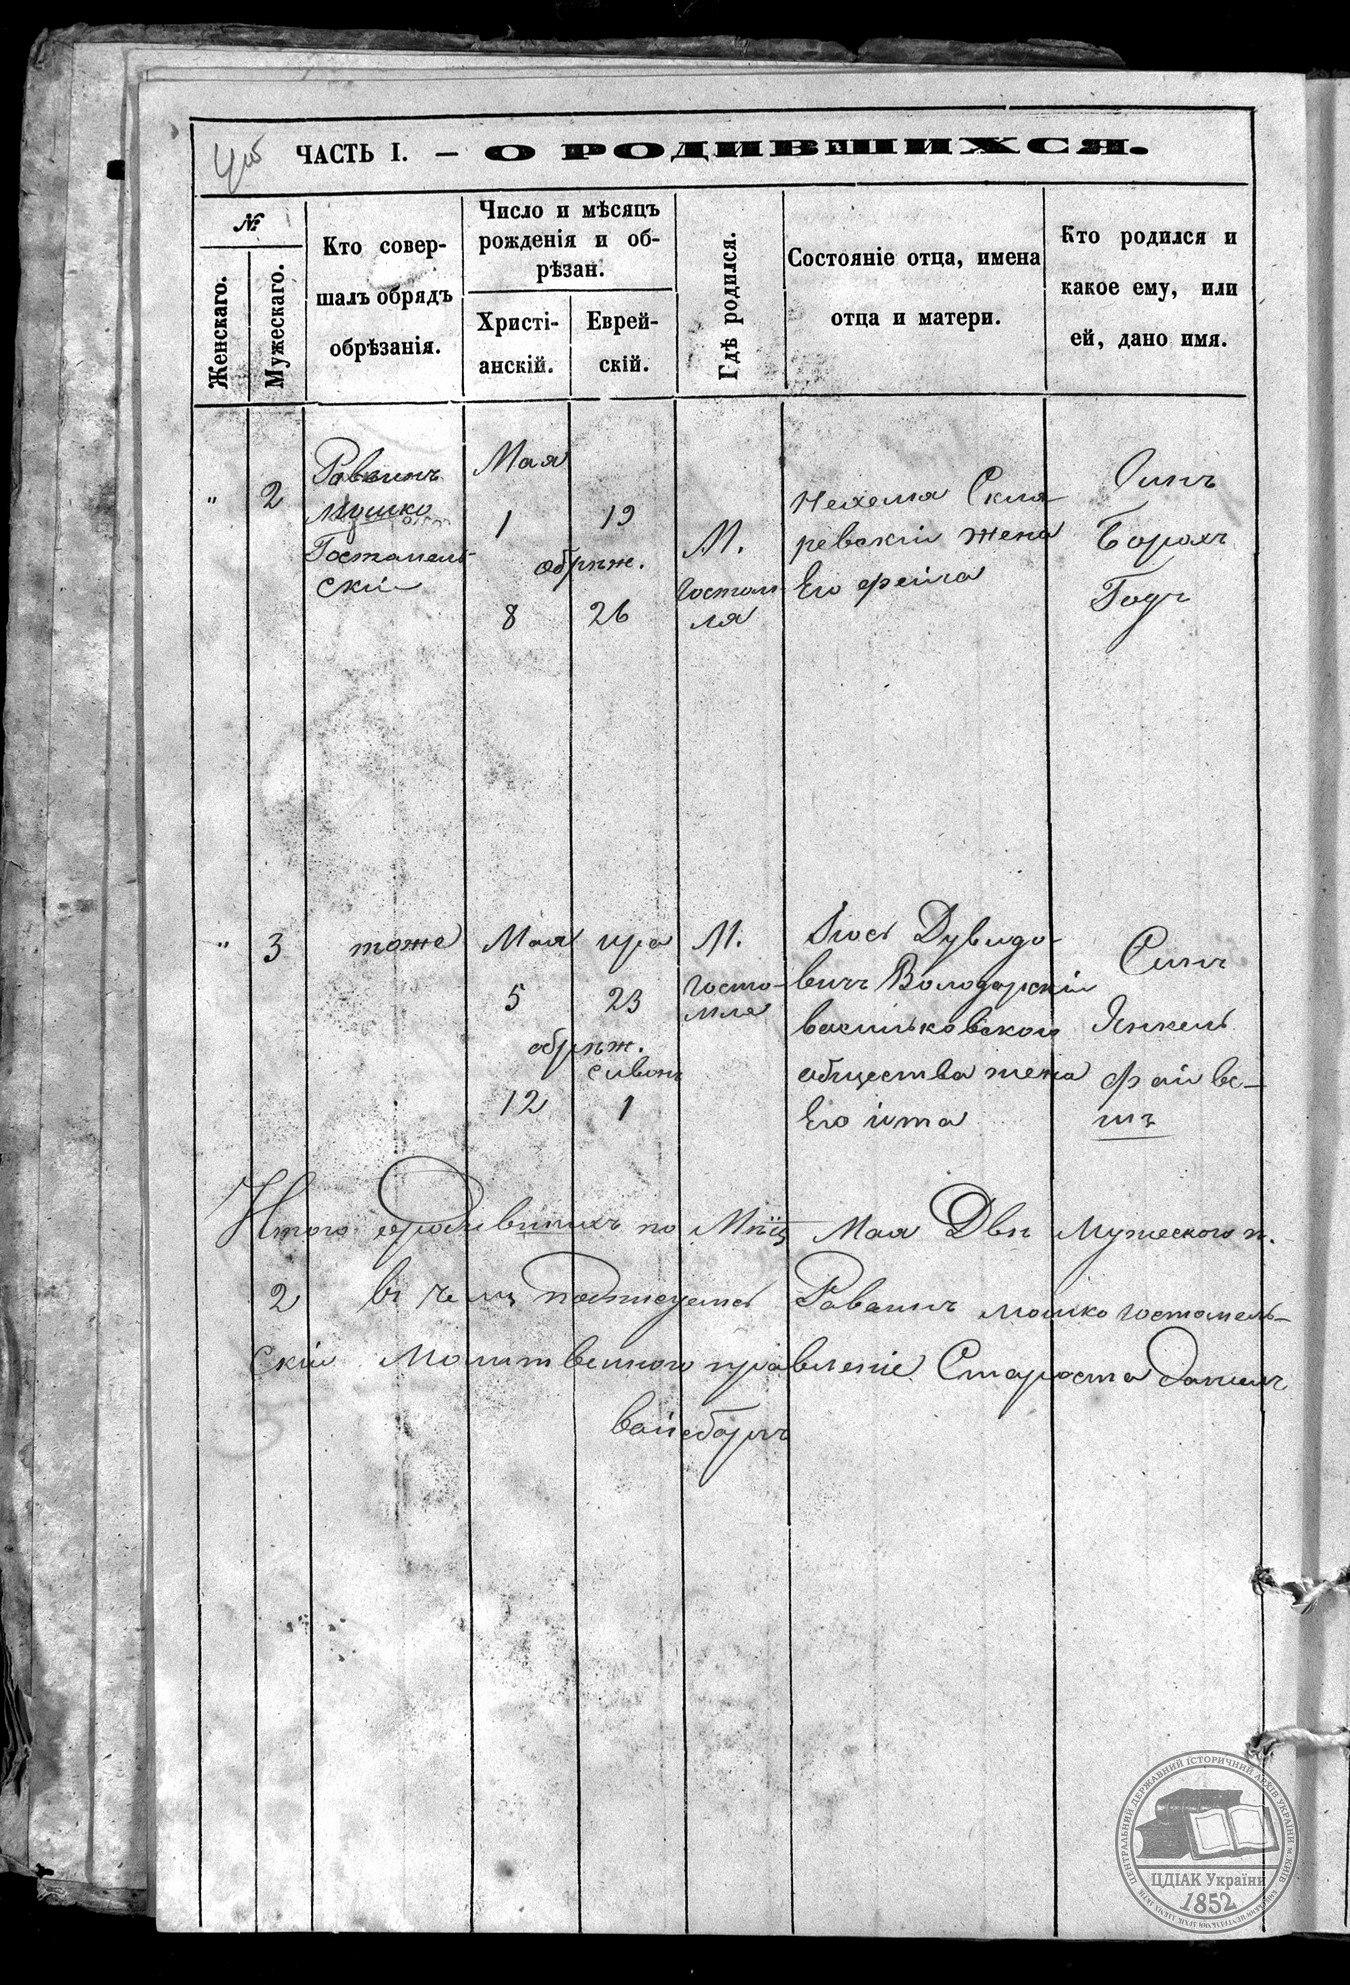 ЧАСТЬ I. — О РОДИВШИХСЯ.
№
Женскаго.
Мужескаго.
Кто совер-
шалъ обрядъ
обрѣзанія.
Число и мѣсяцъ
рожденія и об-
рѣзан.
Христі-
анскій.
Еврей-
скій.
Гдѣ родился.
Состояніе отца, имена
отца и матери.
Кто родился и
какое ему, или
ей, дано имя.
"
2
Раввинъ
Мошко
Гостомель-
скій
Мая
1
19
обрѣж.
8
26
М.
Гостом-
ля
Нехемя Скля-
ревскій жена
Его фейга
Синъ
Борохъ
"
3
тоже
Мая
ира
5
23
обрѣж.
сивонъ
12
1
М.
Госто-
мля
Дувидо-
вичъ Володарскій
васильковского
общества жена
Его іита
Синъ
Янкель
фаиве-
шъ
Итого родившихъ по Мѣц Мая Два Мужеского п.
2 въ чемъ подписуемъ Раввинъ мошко гостомель-
скій Молитвенного правленіе Староста Данилъ